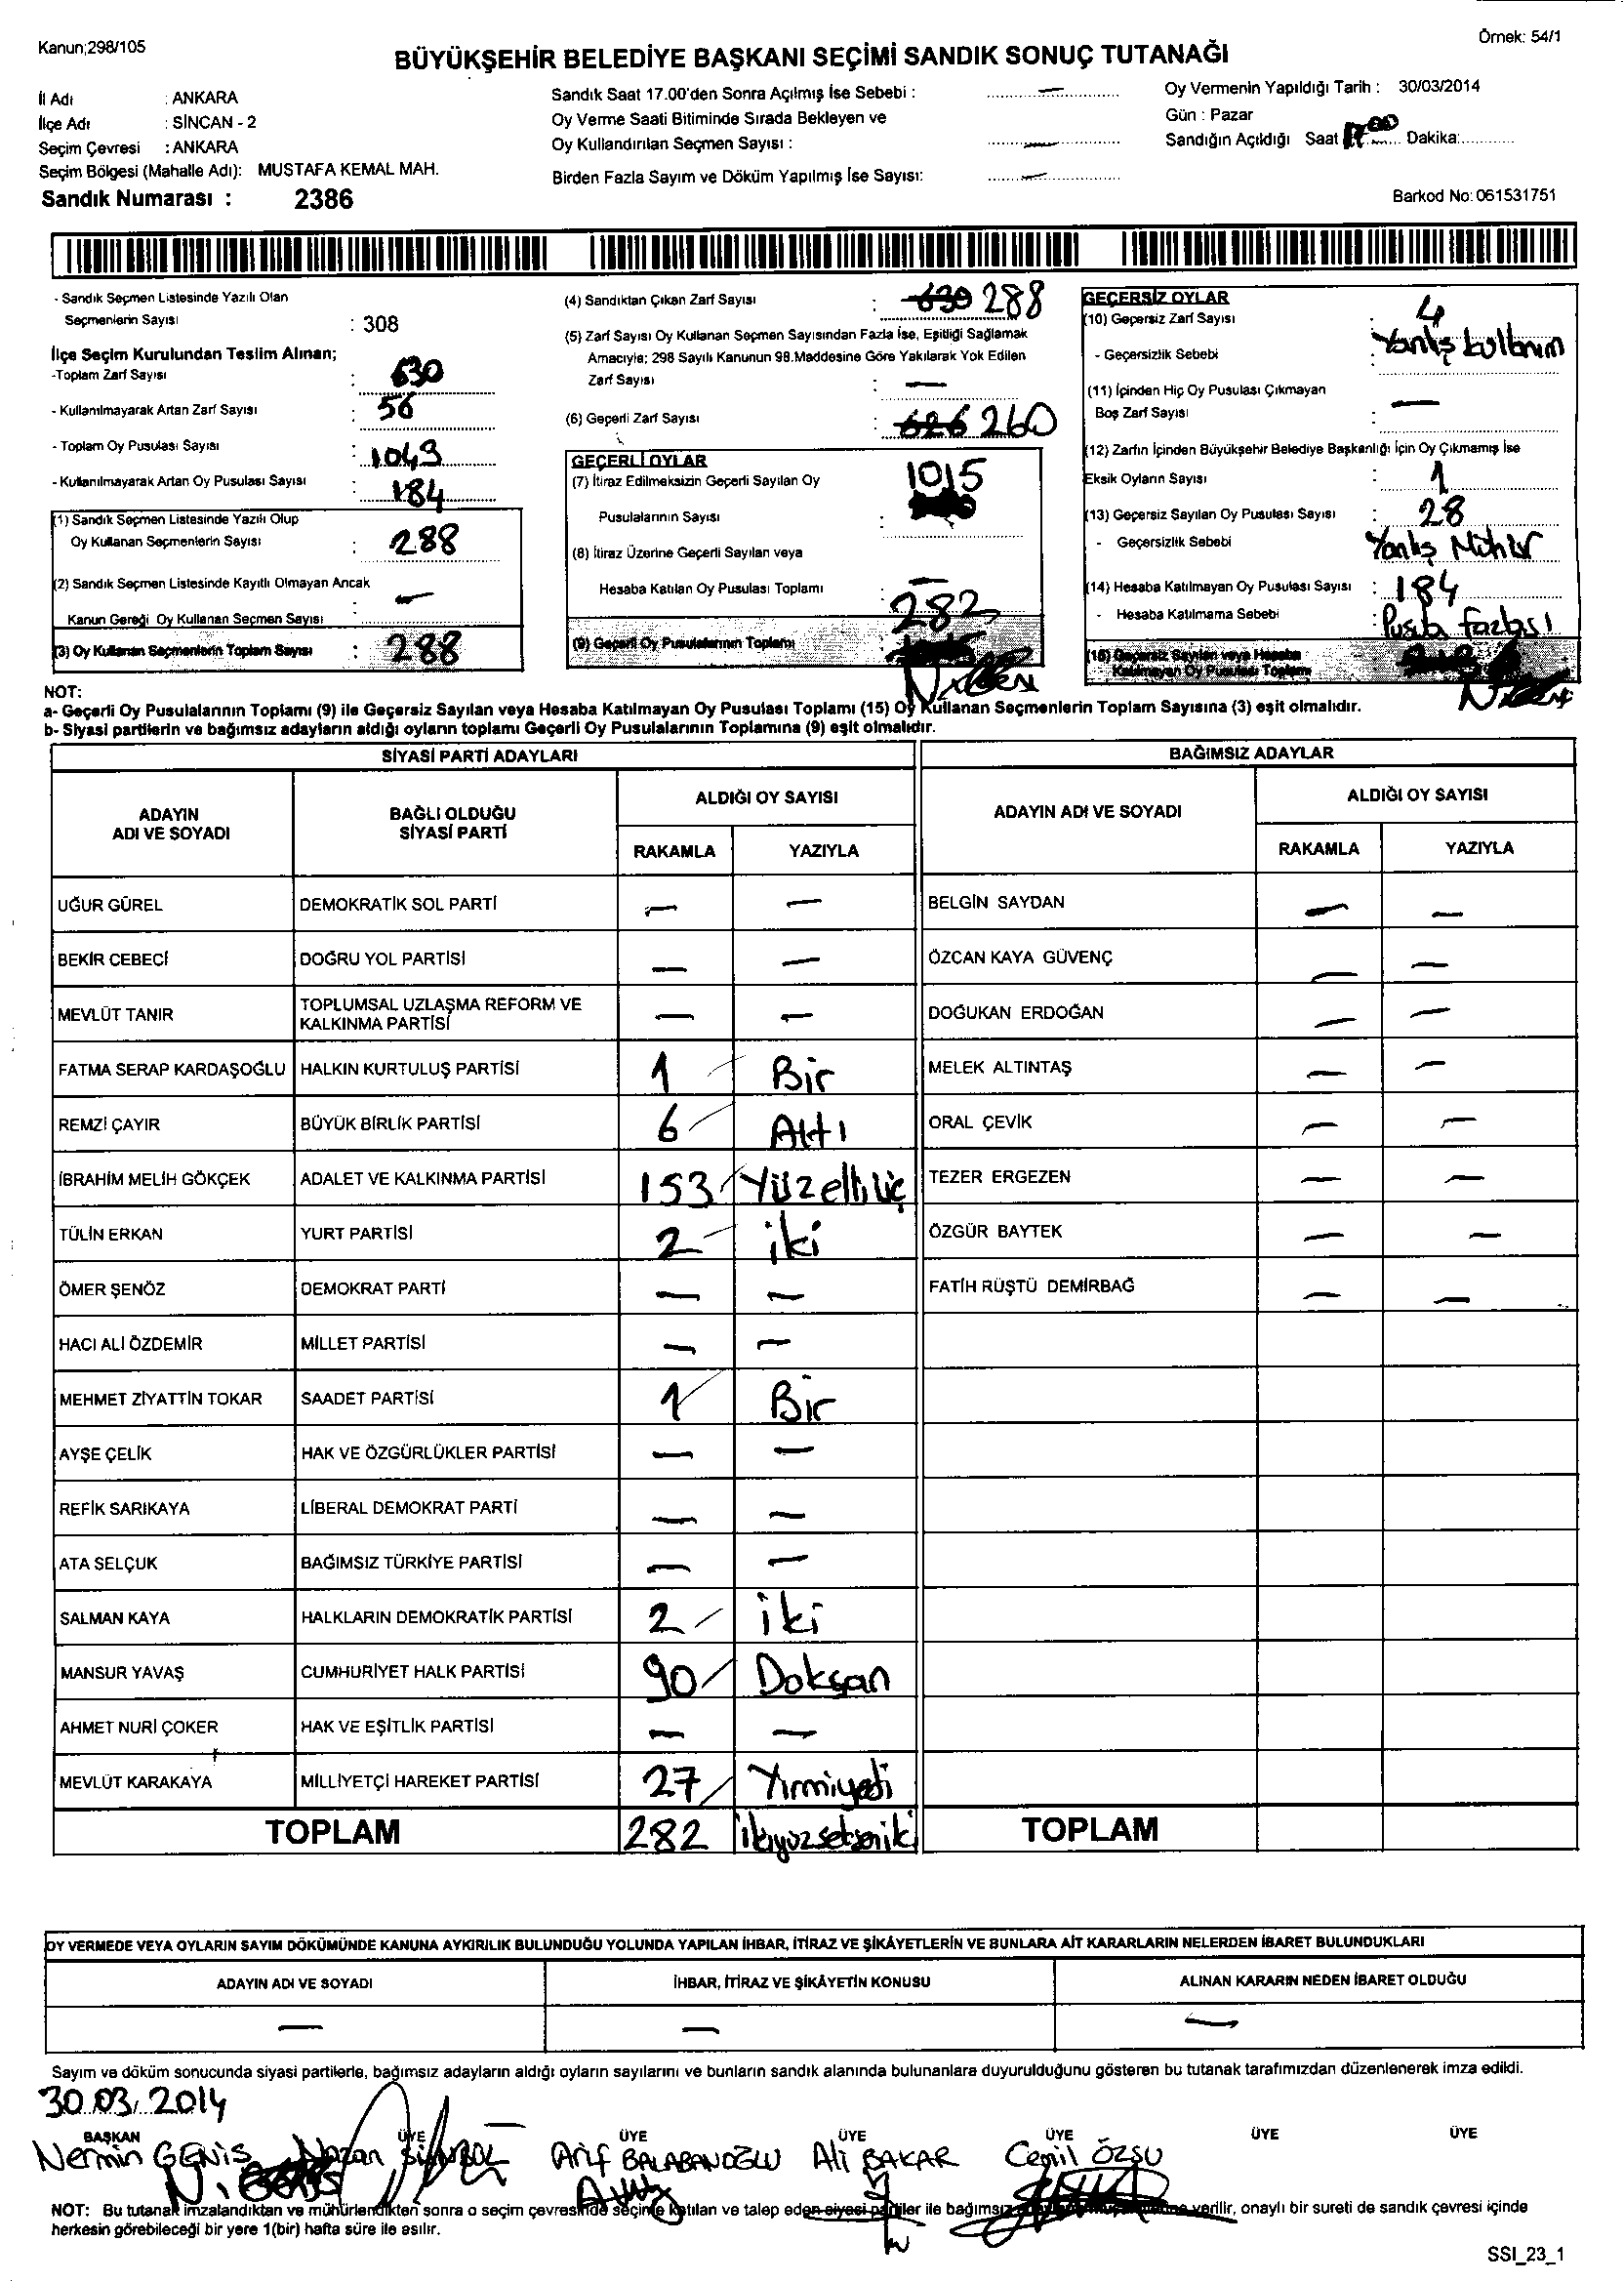 Kanun;298/105
Örnek: 54/1
BÜYÜKŞEHİR BELEDİYE BAŞKANI SEÇİMİ SANDIK SONUÇ TUTANAĞI
İl Adı : ANKARA
İlçe Adı : SİNCAN - 2
Seçim Çevresi : ANKARA
Seçim Bölgesi (Mahalle Adı): MUSTAFA KEMAL MAH.
Sandık Numarası : 2386
Sandık Saat 17.00'den Sonra Açılmış İse Sebebi : —
Oy Verme Saati Bitiminde Sırada Bekleyen ve
Oy Kullandırılan Seçmen Sayısı : —
Birden Fazla Sayım ve Döküm Yapılmış İse Sayısı: —
Oy Vermenin Yapıldığı Tarih : 30/03/2014
Gün : Pazar
Sandığın Açıldığı Saat Dakika:
Barkod No: 061531751
- Sandık Seçmen Listesinde Yazılı Olan
Seçmenlerin Sayısı : 308
İlçe Seçim Kurulundan Teslim Alınan;
-Toplam Zarf Sayısı : 630
- Kullanılmayarak Artan Zarf Sayısı : 56
- Toplam Oy Pusulası Sayısı : 1043
- Kullanılmayarak Artan Oy Pusulası Sayısı : 184
(1) Sandık Seçmen Listesinde Yazılı Olup
Oy Kullanan Seçmenlerin Sayısı : 288
(2) Sandık Seçmen Listesinde Kayıtlı Olmayan Ancak
Kanun Gereği Oy Kullanan Seçmen Sayısı : —
(3) Oy Kullanan Seçmenlerin Toplam Sayısı : 288
(4) Sandıktan Çıkan Zarf Sayısı : 630 288
(5) Zarf Sayısı Oy Kullanan Seçmen Sayısından Fazla İse, Eşitliği Sağlamak
Amacıyla; 298 Sayılı Kanunun 98.Maddesine Göre Yakılarak Yok Edilen
Zarf Sayısı : —
(6) Geçerli Zarf Sayısı : 626 260
GEÇERLİ OYLAR
(7) İtiraz Edilmeksizin Geçerli Sayılan Oy
Pusulalarının Sayısı : 1015
(8) İtiraz Üzerine Geçerli Sayılan veya
Hesaba Katılan Oy Pusulası Toplamı : —
(9) Geçerli Oy Pusulalarının Toplamı 282
GEÇERSİZ OYLAR
(10) Geçersiz Zarf Sayısı : 4
- Geçersizlik Sebebi : Yanlış kullanım
(11) İçinden Hiç Oy Pusulası Çıkmayan
Boş Zarf Sayısı : —
(12) Zarfın İçinden Büyükşehir Belediye Başkanlığı İçin Oy Çıkmamış İse
Eksik Oyların Sayısı : 1
(13) Geçersiz Sayılan Oy Pusulası Sayısı : 28
- Geçersizlik Sebebi Yanlış Mühür
(14) Hesaba Katılmayan Oy Pusulası Sayısı : 184
- Hesaba Katılmama Sebebi : Pusula fazlası
(15) Geçersiz Sayılan veya Hesaba
Katılmayan Oy Pusulası Toplamı
NOT:
a- Geçerli Oy Pusulalarının Toplamı (9) ile Geçersiz Sayılan veya Hesaba Katılmayan Oy Pusulası Toplamı (15) Oy Kullanan Seçmenlerin Toplam Sayısına (3) eşit olmalıdır.
b- Siyasi partilerin ve bağımsız adayların aldığı oyların toplamı Geçerli Oy Pusulalarının Toplamına (9) eşit olmalıdır.
SİYASİ PARTİ ADAYLARI
BAĞIMSIZ ADAYLAR
ADAYIN ADI VE SOYADI
BAĞLI OLDUĞU SİYASİ PARTİ
ALDIĞI OY SAYISI
RAKAMLA YAZIYLA
ADAYIN ADI VE SOYADI
ALDIĞI OY SAYISI
RAKAMLA YAZIYLA
UĞUR GÜREL DEMOKRATİK SOL PARTİ — — BELGİN SAYDAN — —
BEKİR CEBECİ DOĞRU YOL PARTİSİ — — ÖZCAN KAYA GÜVENÇ — —
MEVLÜT TANIR TOPLUMSAL UZLAŞMA REFORM VE KALKINMA PARTİSİ — — DOĞUKAN ERDOĞAN — —
FATMA SERAP KARDAŞOĞLU HALKIN KURTULUŞ PARTİSİ 1 Bir MELEK ALTINTAŞ — —
REMZİ ÇAYIR BÜYÜK BİRLİK PARTİSİ 6 Altı ORAL ÇEVİK — —
İBRAHİM MELİH GÖKÇEK ADALET VE KALKINMA PARTİSİ 153 Yüzelliüç TEZER ERGEZEN — —
TÜLİN ERKAN YURT PARTİSİ 2 iki ÖZGÜR BAYTEK — —
ÖMER ŞENÖZ DEMOKRAT PARTİ — — FATİH RÜŞTÜ DEMİRBAĞ — —
HACI ALİ ÖZDEMİR MİLLET PARTİSİ — —
MEHMET ZİYATTİN TOKAR SAADET PARTİSİ 1 Bir
AYŞE ÇELİK HAK VE ÖZGÜRLÜKLER PARTİSİ — —
REFİK SARIKAYA LİBERAL DEMOKRAT PARTİ — —
ATA SELÇUK BAĞIMSIZ TÜRKİYE PARTİSİ — —
SALMAN KAYA HALKLARIN DEMOKRATİK PARTİSİ 2 iki
MANSUR YAVAŞ CUMHURİYET HALK PARTİSİ 90 Doksan
AHMET NURİ ÇOKER HAK VE EŞİTLİK PARTİSİ — —
MEVLÜT KARAKAYA MİLLİYETÇİ HAREKET PARTİSİ 27 Yirmiyedi
TOPLAM 282 ikiyüzsekseniki TOPLAM
OY VERMEDE VEYA OYLARIN SAYIM DÖKÜMÜNDE KANUNA AYKIRILIK BULUNDUĞU YOLUNDA YAPILAN İHBAR, İTİRAZ VE ŞİKÂYETLERİN VE BUNLARA AİT KARARLARIN NELERDEN İBARET BULUNDUKLARI
ADAYIN ADI VE SOYADI İHBAR, İTİRAZ VE ŞİKÂYETİN KONUSU ALINAN KARARIN NEDEN İBARET OLDUĞU
— — —
Sayım ve döküm sonucunda siyasi partilerle, bağımsız adayların aldığı oyların sayılarını ve bunların sandık alanında bulunanlara duyurulduğunu gösteren bu tutanak tarafımızdan düzenlenerek imza edildi.
30.03.2014
BAŞKAN ÜYE ÜYE ÜYE ÜYE ÜYE ÜYE
Nermin GENİŞ Nazan Arif BALABANOĞLU Ali BAKAR Cemil ÖZSU
NOT: Bu tutanak imzalandıktan ve mühürlendikten sonra o seçim çevresinde seçime katılan ve talep eden siyasi partiler ile bağımsız verilir, onaylı bir sureti de sandık çevresi içinde
herkesin görebileceği bir yere 1(bir) hafta süre ile asılır.
SSI_23_1